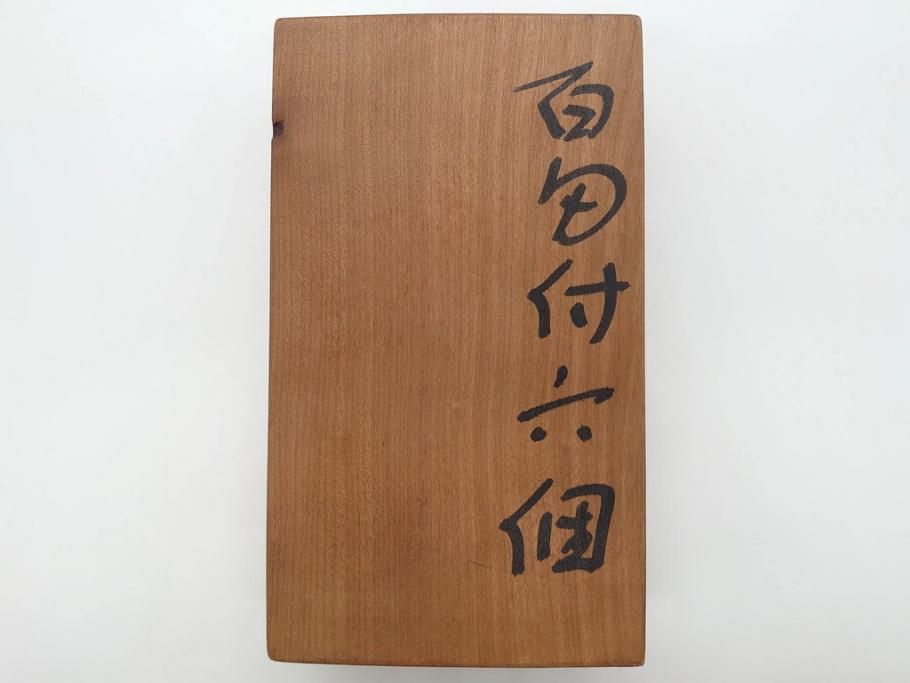 百匁付六個